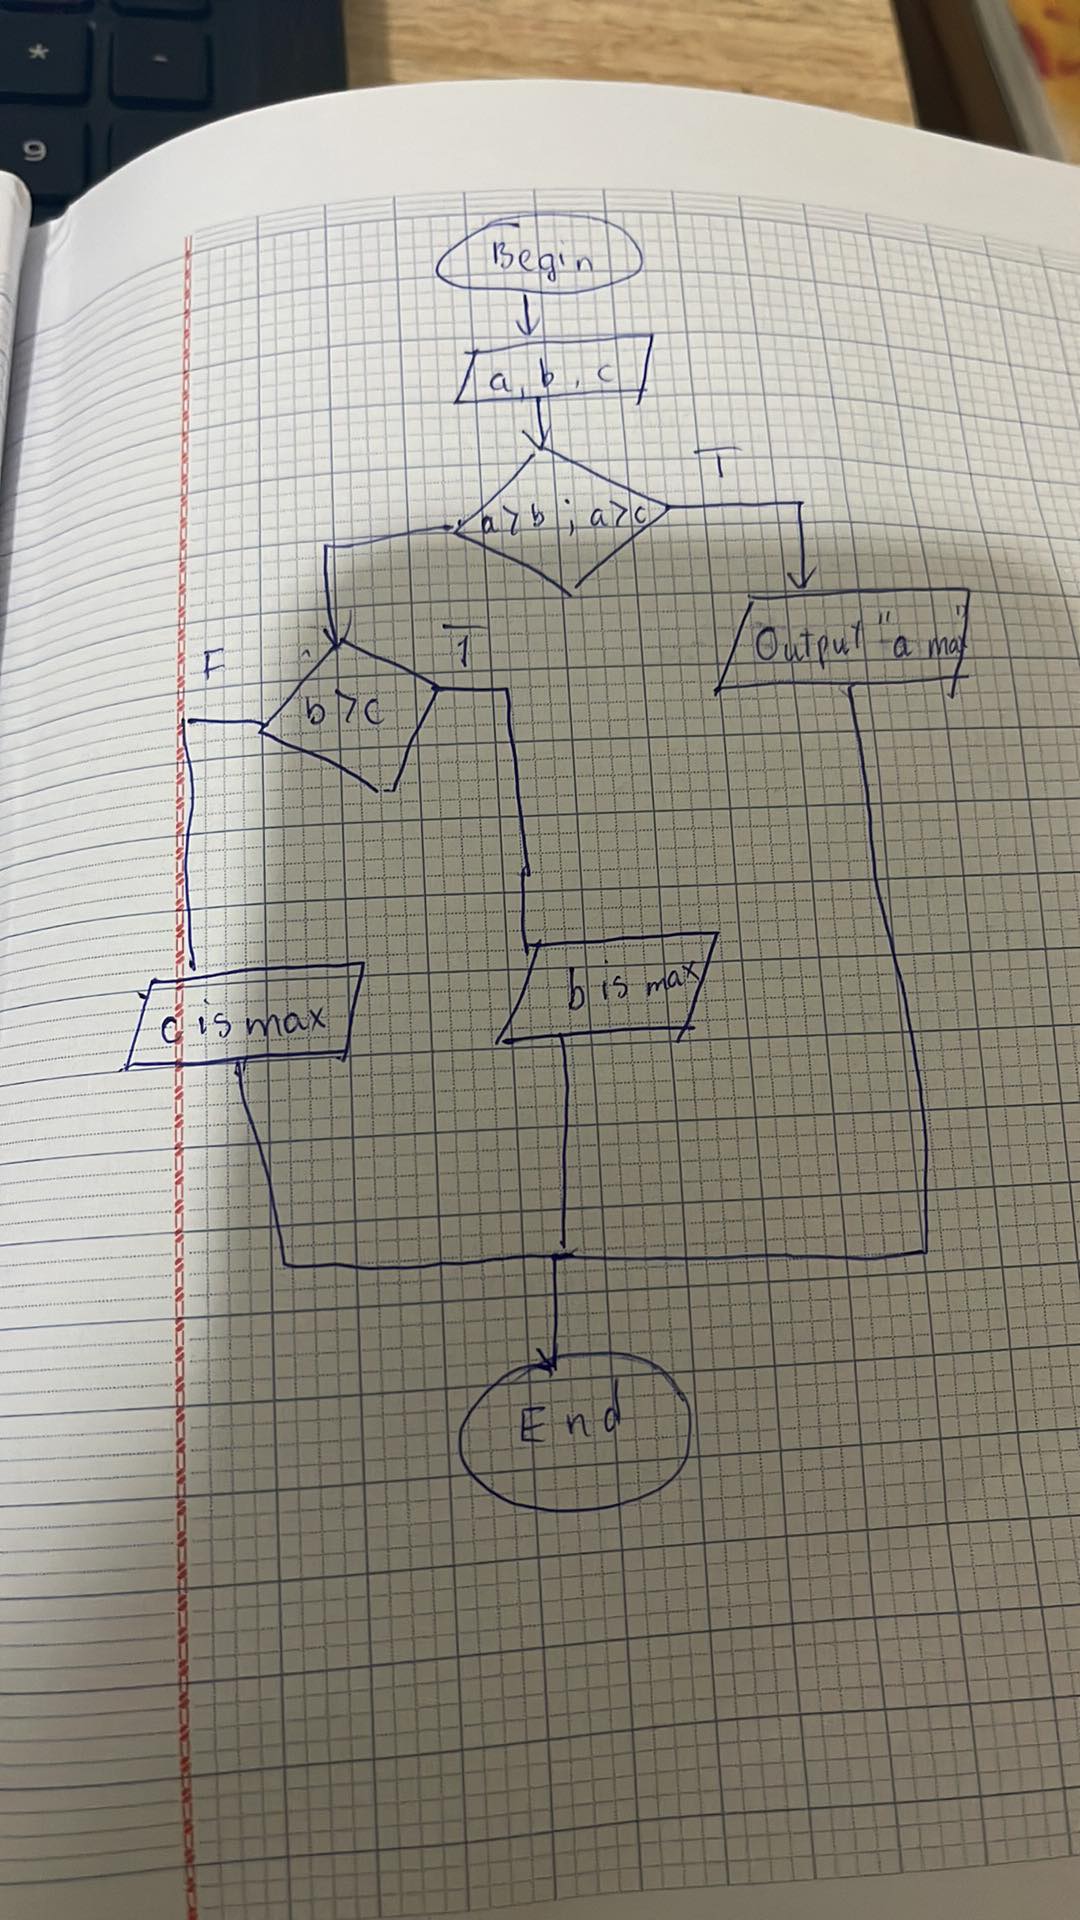 *
-
9
Begin
a, b, c
T
a>b ; a>c
Output "a max"
F
T
b>c
b is max
c is max
End